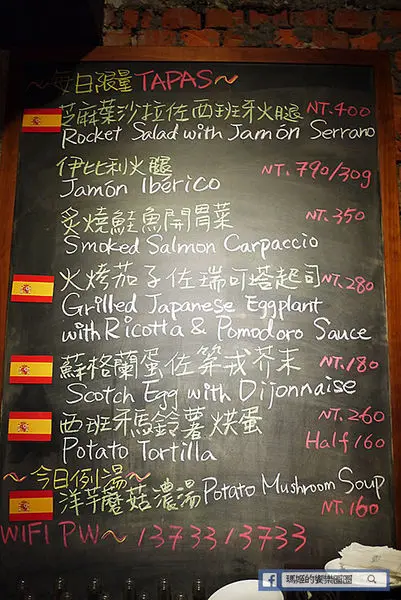 ~每日限量 TAPAS~
芝麻葉沙拉佐西班牙火腿 NT.400
Rocket Salad with Jamón Serrano
伊比利火腿 NT.790/30g
Jamón Ibérico
炙燒鮭魚開胃菜 NT.350
Smoked Salmon Carpaccio
火烤茄子佐瑞可塔起司 NT.280
Grilled Japanese Eggplant
with Ricotta & Pomodoro Sauce
蘇格蘭蛋佐第戎芥末 NT.180
Scotch Egg with Dijonnaise
西班牙馬鈴薯烘蛋 NT.260
Potato Tortilla Half 160
~今日例湯~
洋芋蘑菇濃湯 Potato Mushroom Soup
NT.160
WIFI PW~ 1373313733
f 瑪姬的饗樂圈圈